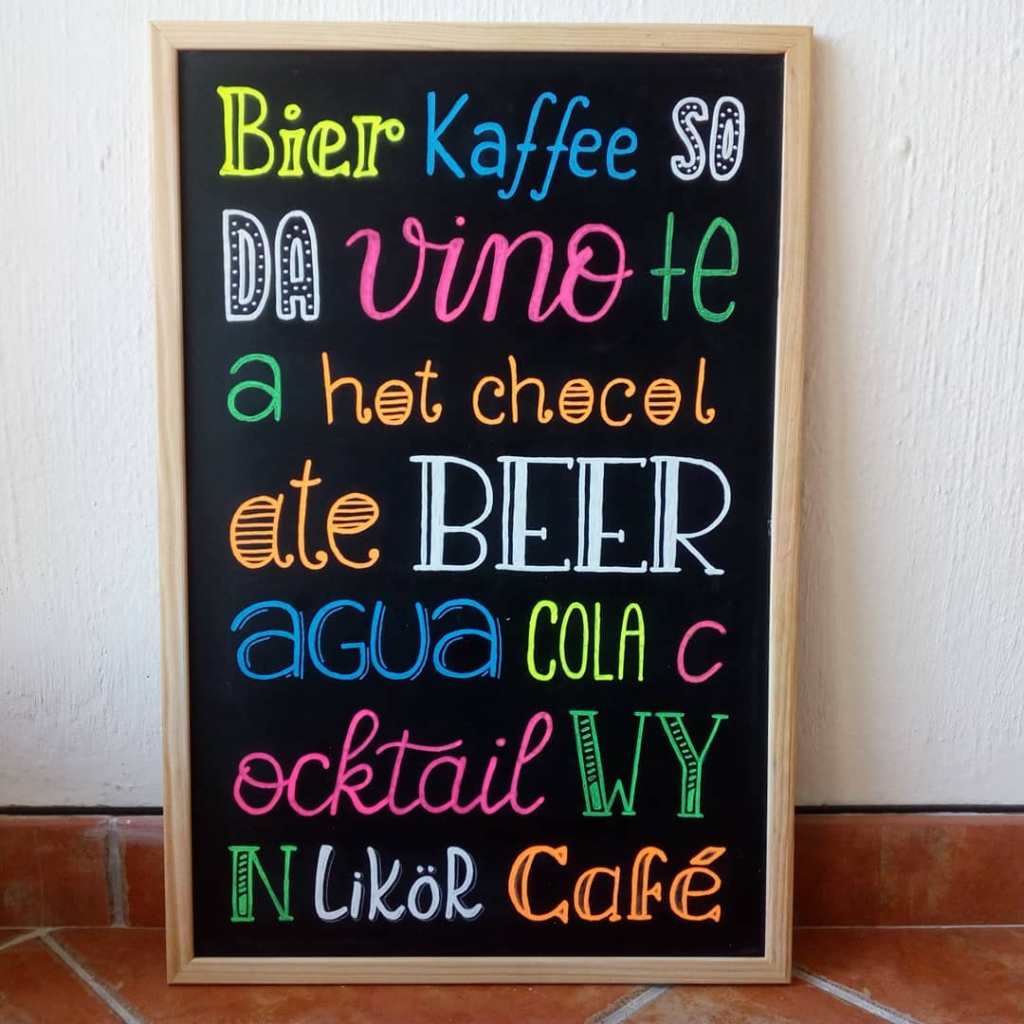 Bier Kaffee SO
DA vino te
a hot chocol
ate BEER
agua COLA c
ocktail WY
N LiKöR Café